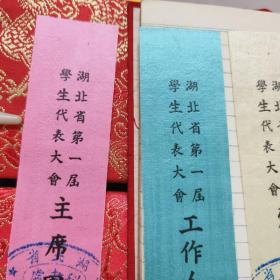 湖北省第一屆
學生代表大會
主席
湖北省第一屆
學生代表大會
工作
湖北省第一屆